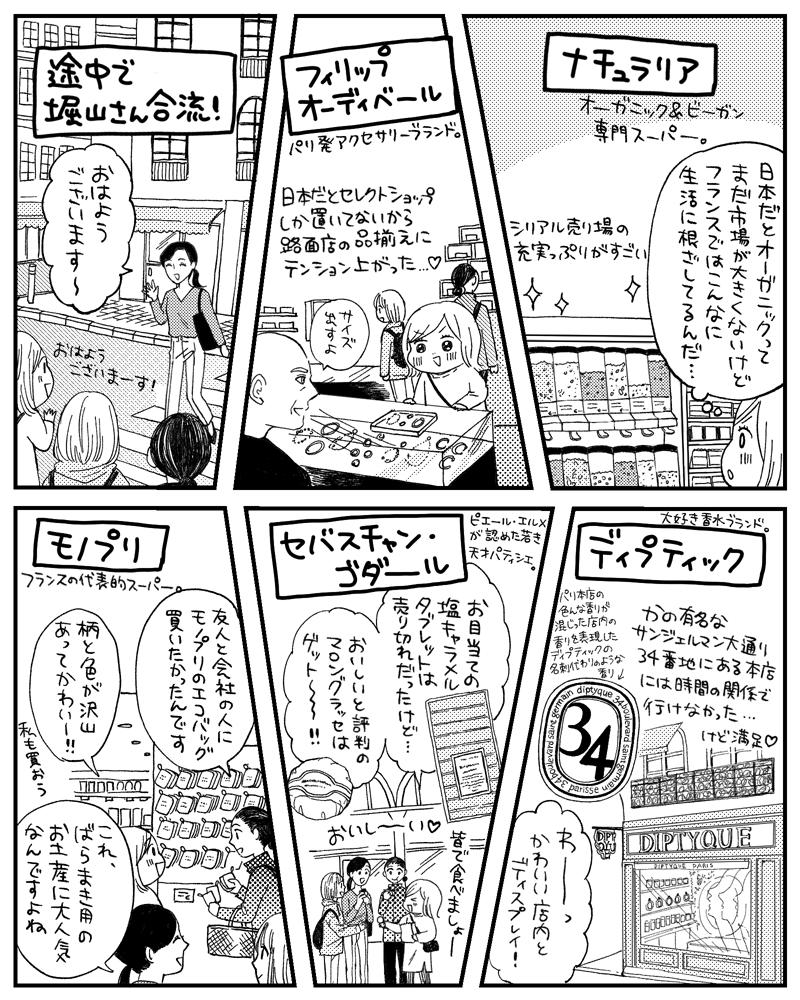 ナチュラリア
オーガニック&ビーガン
専門スーパー。
日本だとオーガニックって
まだ市場が大きくないけど
フランスではこんなに
生活に根ざしてるんだ…
シリアル売り場の
充実っぷりがすごい
フィリップ
オーディベール
パリ発アクセサリーブランド。
日本だとセレクトショップ
しか置いてないから
路面店の品揃えに
テンション上がった…♡
サイズ
出すよ
途中で
堀山さん合流!
おはよう
ございます〜
おはよう
ございまーす!
ディプティック
大好き香水ブランド。
かの有名な
サンジェルマン大通り
34番地にある本店
には時間の関係で
行けなかった…
けど満足♡
パリ本店の
色んな香りが
混じった店内の
香りを表現した
ディプティックの
名刺代わりのような
香り↓
34 boulevard saint germain diptyque 34 boulevard saint germain
paris 5e
34
DIPTYQUE
DIPTYQUE PARIS
わーーっ
かわいい店内と
ディスプレイ!
セバスチャン・
ゴダール
ピエール・エルメ
が認めた若き
天才パティシエ。
お目当ての
塩キャラメル
タブレットは
売り切れだったけど…
おいしいと評判の
マロングラッセは
ゲット〜〜!!
おいし〜〜い♡
皆で食べましょー
モノプリ
フランスの代表的スーパー。
友人と会社の人に
モノプリのエコバッグ
買いたかったんです
柄と色が沢山
あってかわいー!!
私も買おう
これ、
ばらまき用の
お土産に大人気
なんですよね